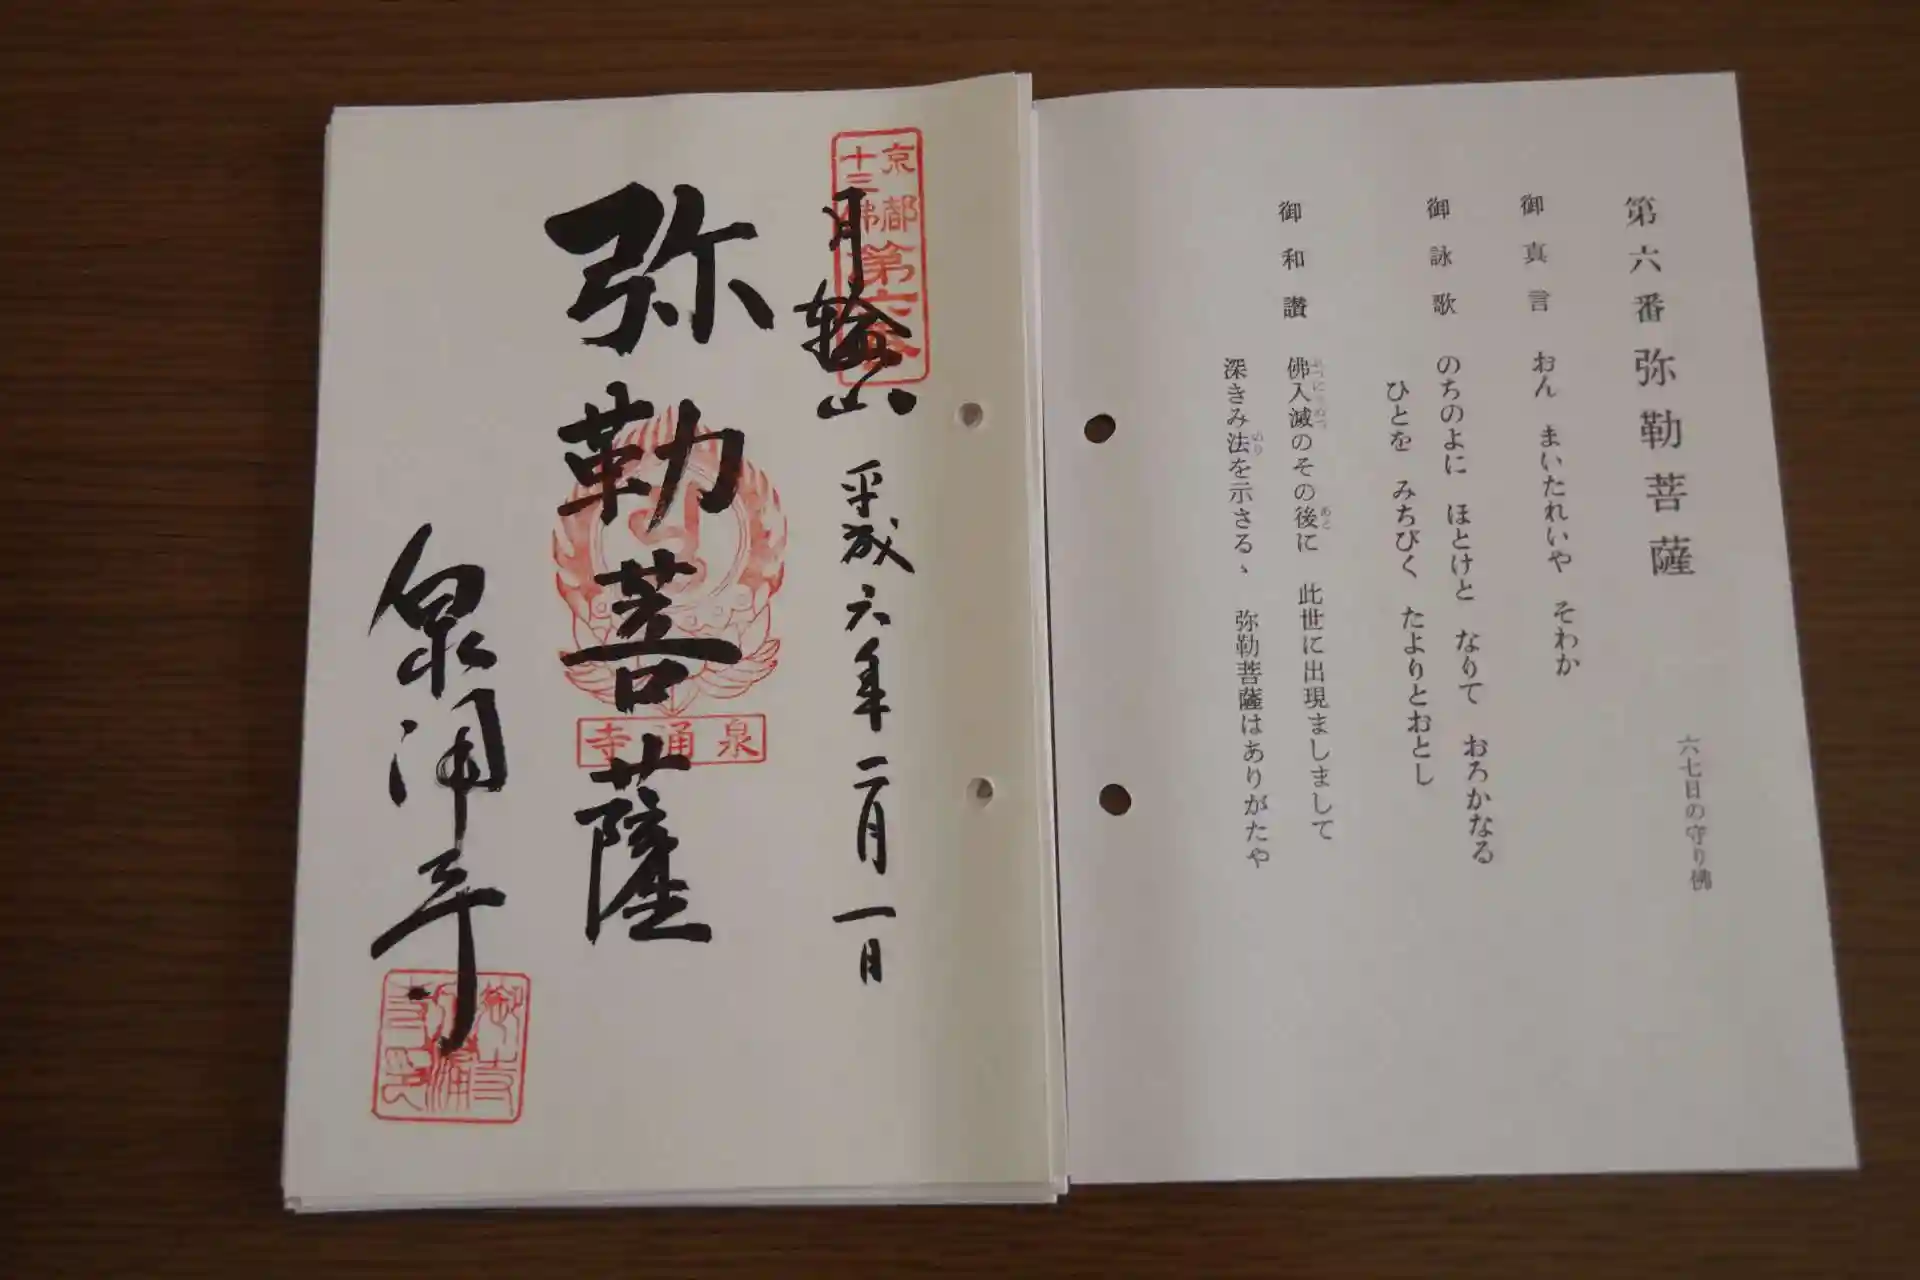 第六番弥勒菩薩 六七日の守り佛
御真言 おん まいたれいや そわか
御詠歌 のちのよに ほとけと なりて おろかなる
ひとを みちびく たよりとおとし
御和讃 佛入滅のその後に 此世に出現ましまして
深きみ法を示さるゝ 弥勒菩薩はありがたや
京都
十三佛
第六番
月輪山 平成六年二月一日
弥勒菩薩
泉涌寺
泉涌寺